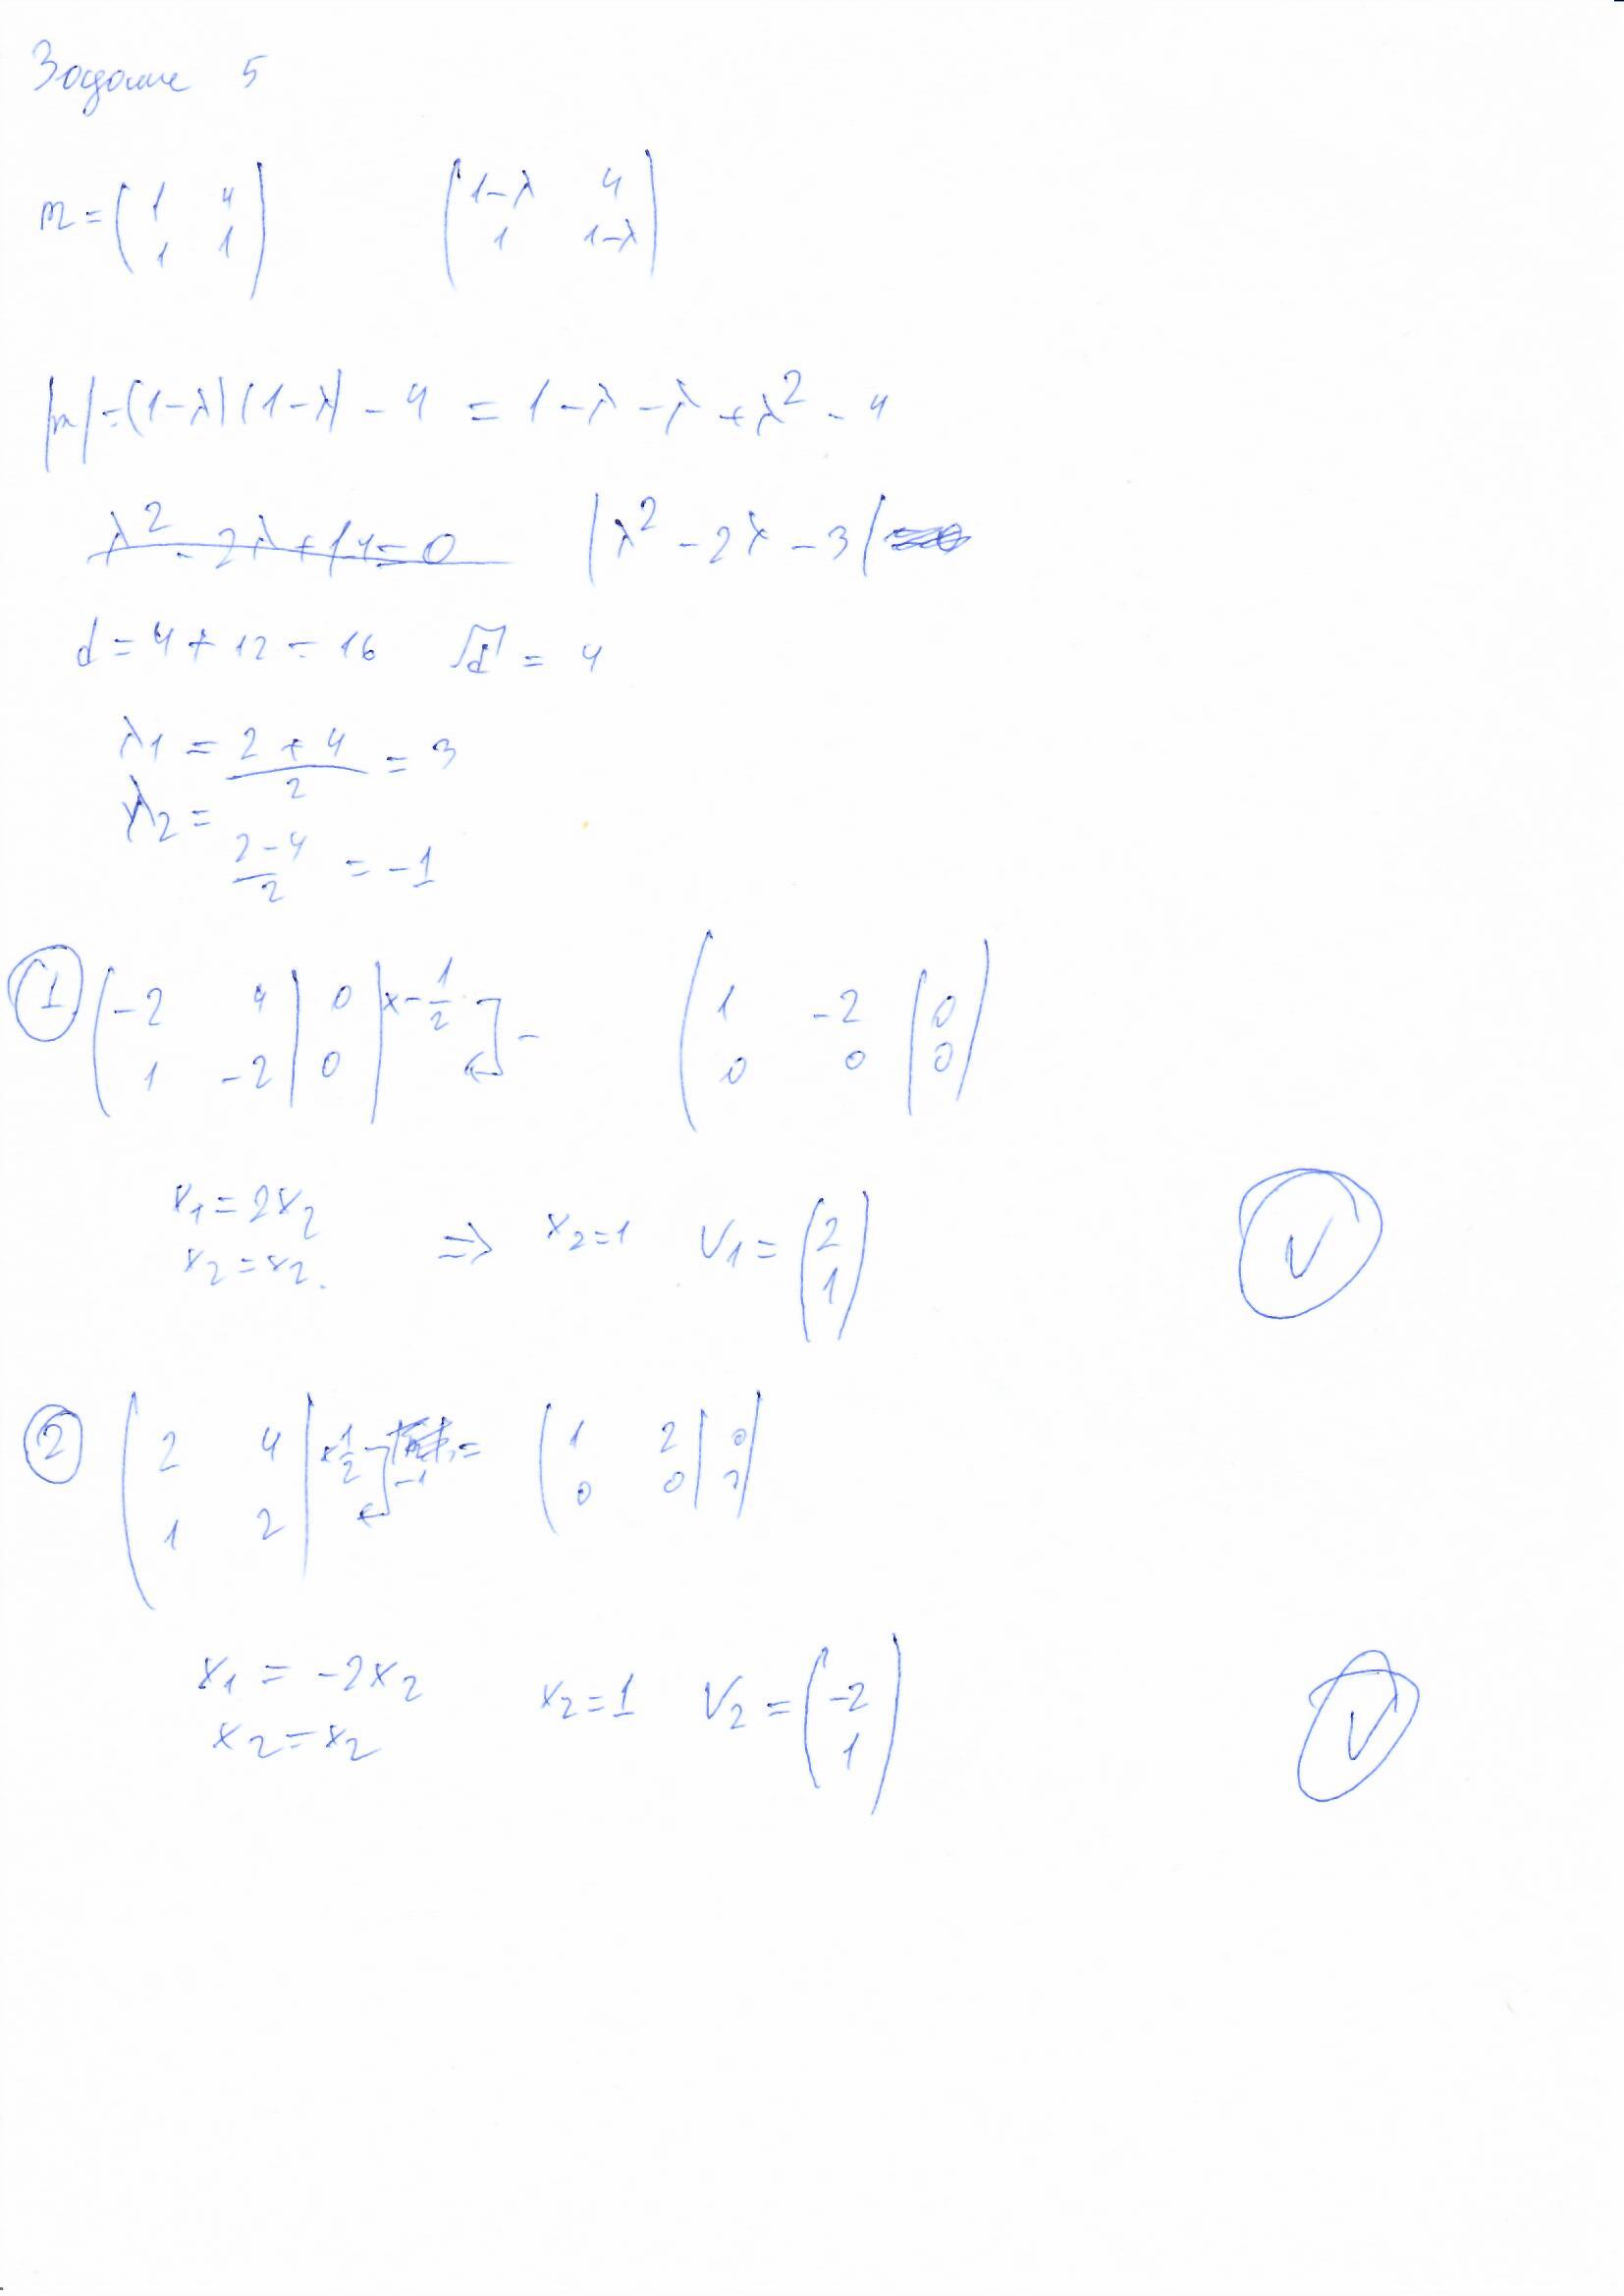 Задание 5
m = ( 1 4 ; 1 1 ) ( 1-λ 4 ; 1 1-λ )
|m| = (1-λ)(1-λ) - 4 = 1 - λ - λ + λ² - 4
λ² - 2λ + 14 = 0 | λ² - 2λ - 3 |
d = 4 + 12 = 16 √d = 4
λ1 = (2 + 4)/2 = 3
λ2 = (2 - 4)/2 = -1
① ( -2 4 | 0 ; 1 -2 | 0 ) x -1/2 - ( 1 -2 | 0 ; 0 0 | 0 )
x1 = 2x2
x2 = x2. ⇒ x2 = 1 V1 = ( 2 ; 1 ) V
② ( 2 4 ; 1 2 ) x 1/2 -1 = ( 1 2 | 0 ; 0 0 | 0 )
x1 = -2x2
x2 = x2 x2 = 1 V2 = ( -2 ; 1 ) V